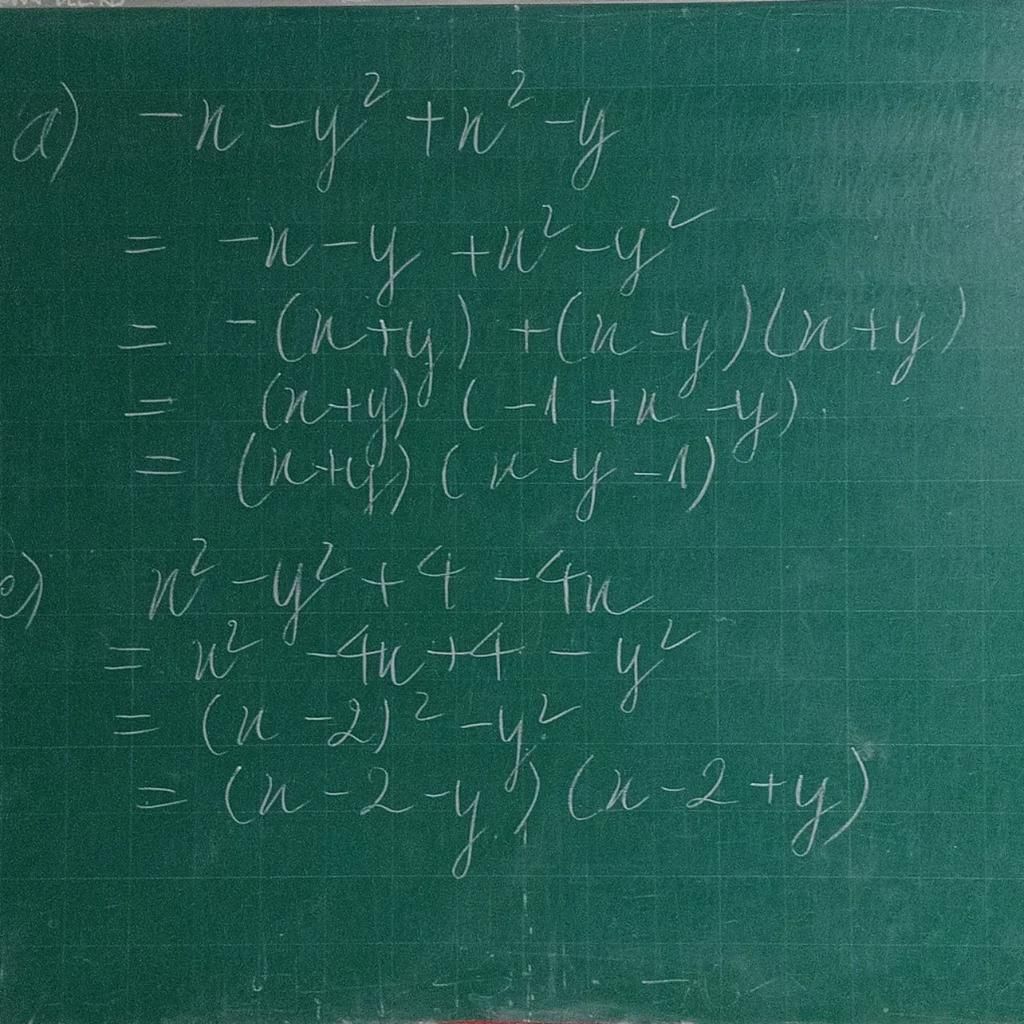 a) -x - y² + x² - y
= -x - y + x² - y²
= -(x+y) + (x-y)(x+y)
= (x+y) (-1 + x - y)
= (x+y) (x - y - 1)
e) x² - y² + 4 - 4x
= x² - 4x + 4 - y²
= (x - 2)² - y²
= (x - 2 - y) (x - 2 + y)